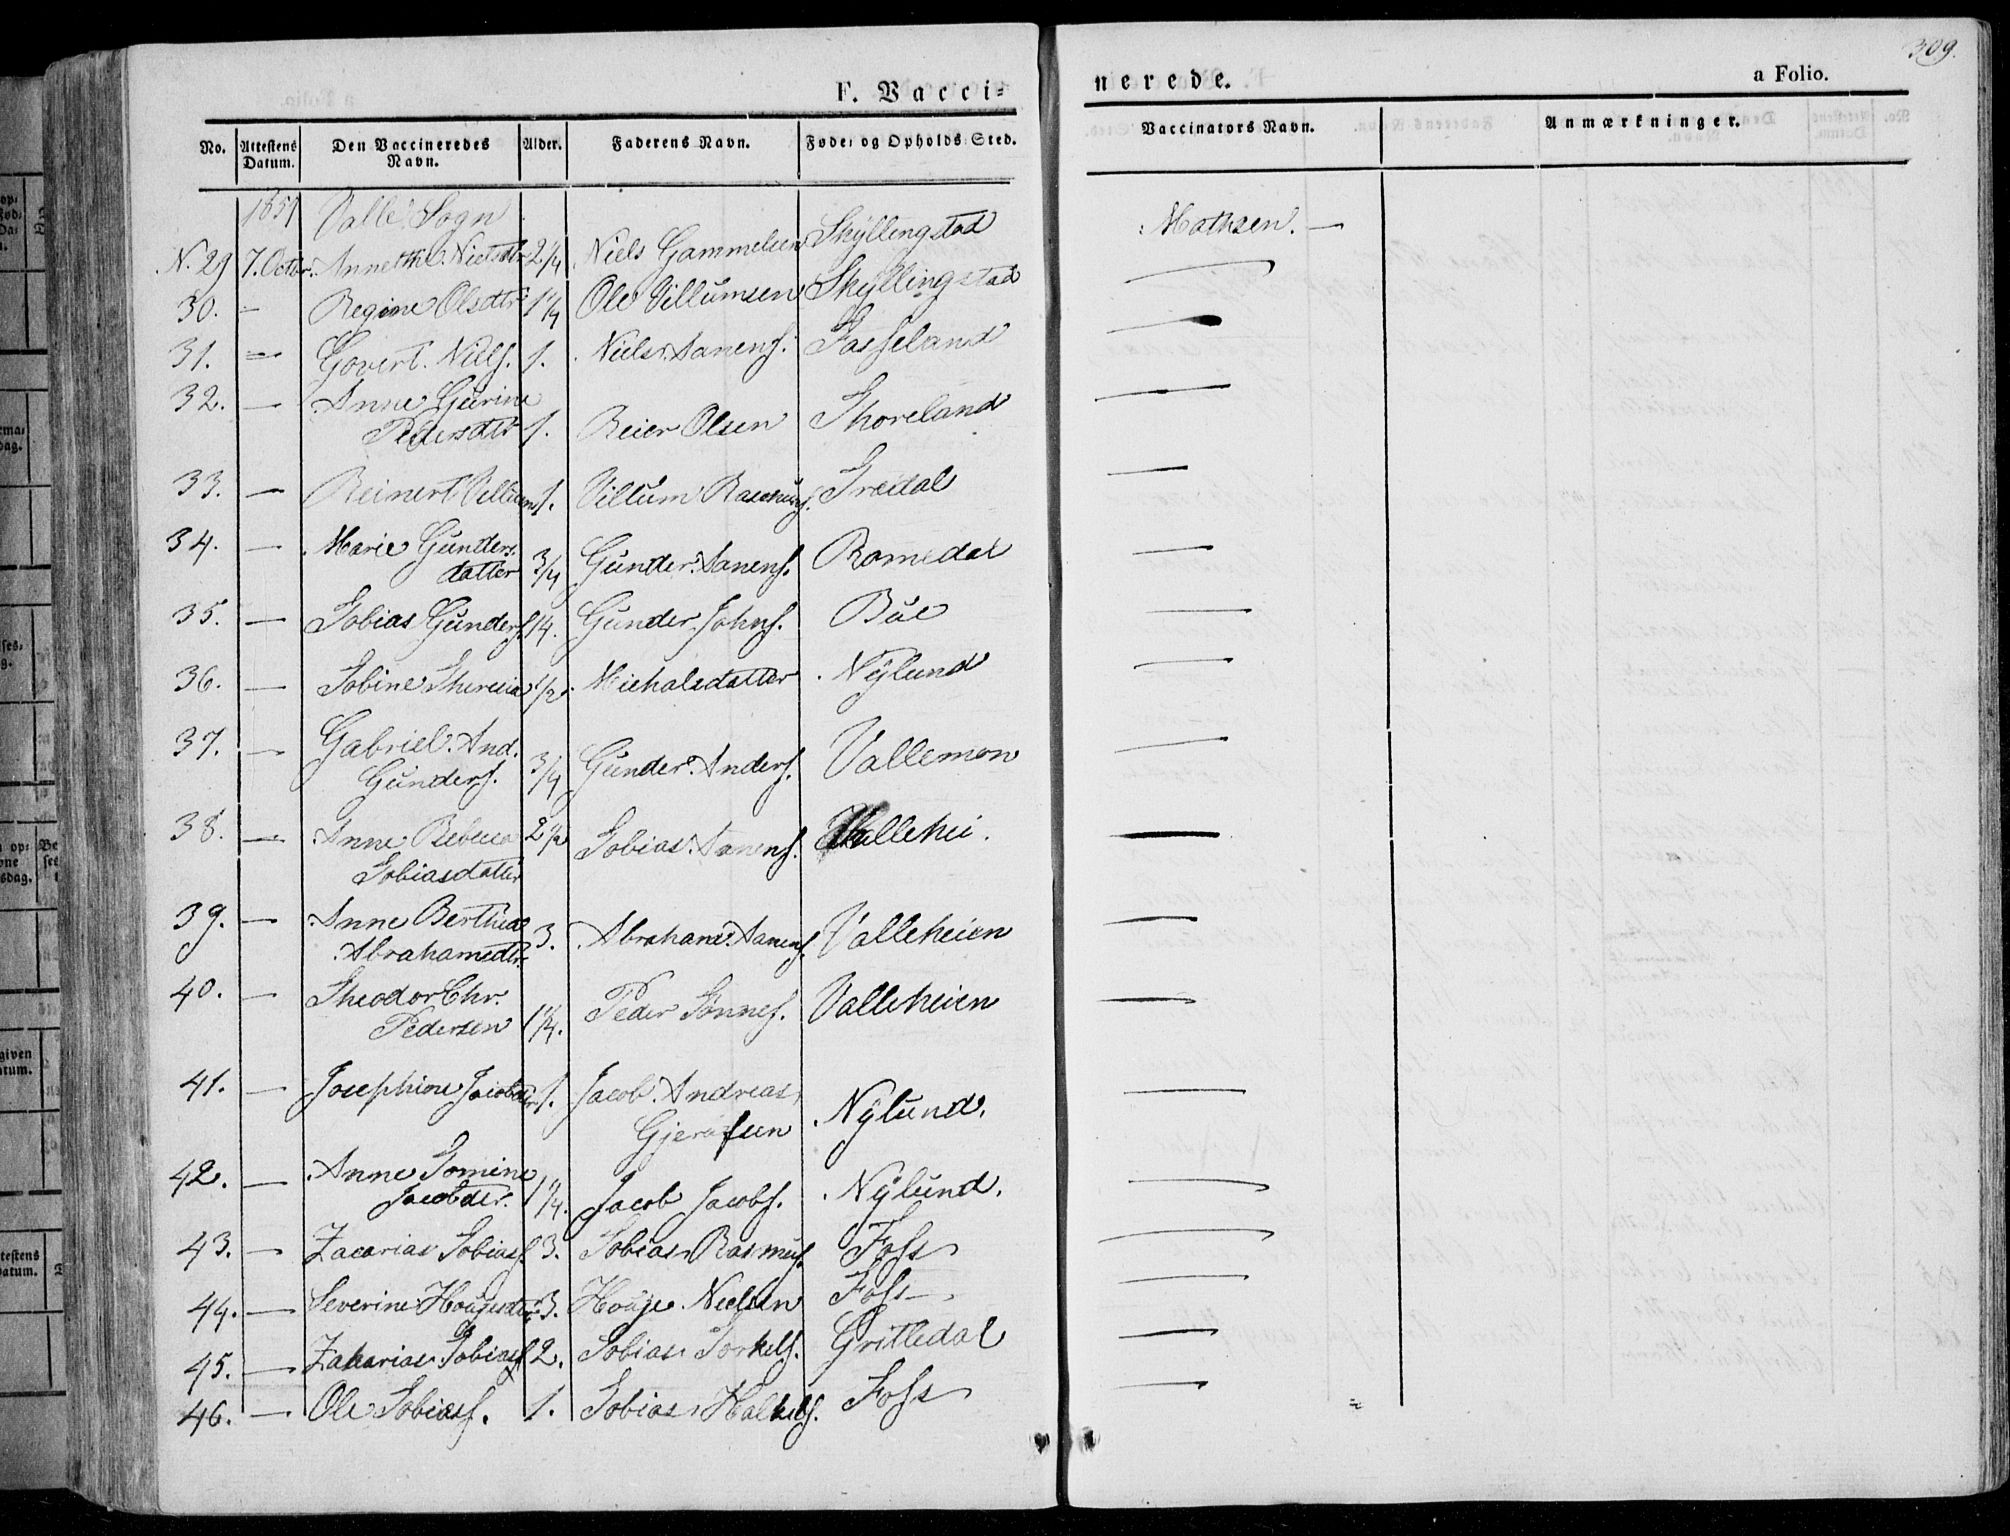 309.
F. Vacci=
nerede.
a Folio.
No. Attestens Datum. Den Vaccineredes Navn. Alder. Faderens Navn. Føde- og Opholds-Sted. Vaccinators Navn. Anmærkninger.
1851 Valle Sogn
N. 29 7. Octbr. Annethe Nielsdtr 2 1/4 Niels Gammelsen Skyllingstad Mathsen. —
30. — Regine Olsdtr 1 1/4 Ole Villumsen Skyllingstad —
31. — Govert Niels. 1. Niels Aanens. Fasseland —
32. — Anne Gurine
Pedersdtr 1. Reier Olsen Thoreland —
33. — Reinert Villum 1. Villum Rasmus. Tredal —
34. — Marie Gunders
datter 3/4 Gunder Aanens. Romedal —
35. — Tobias Gunders. 14. Gunder Johns. Büe —
36. — Tobine Theresia 1/2. Michalsdatter Nÿlund —
37. — Gabriel And.
Gunders. 3/4 Gunder Anders. Vallemon —
38. — Anne Rebecca 2 1/2 Tobias Aanens. Vallehei. —
Tobiasdatter
39. — Anne Berthea
Abrahamsdtr. 3. Abraham Aanens. Valleheien —
40. — Theodor Chr.
Pedersen 1 1/4. Peder Tønnes. Valleheien —
41. — Josephine Jacobdtr 1. Jacob Andreas
Nÿlund. —
42. — Anne Tomine
Jacobdtr. 1 1/4. Jacob Jacobs. Nÿlund. —
43. — Zacarias Tobias. 3. Tobias Rasmus. Foss —
44. — Severine Hougesdtr 3. Houge Nielsen Foss —
45. — Zakarias Tobias. 2. Tobias Torkels. Gritledal —
46. — Ole Tobias. 1. Tobias Halkels. Foss —